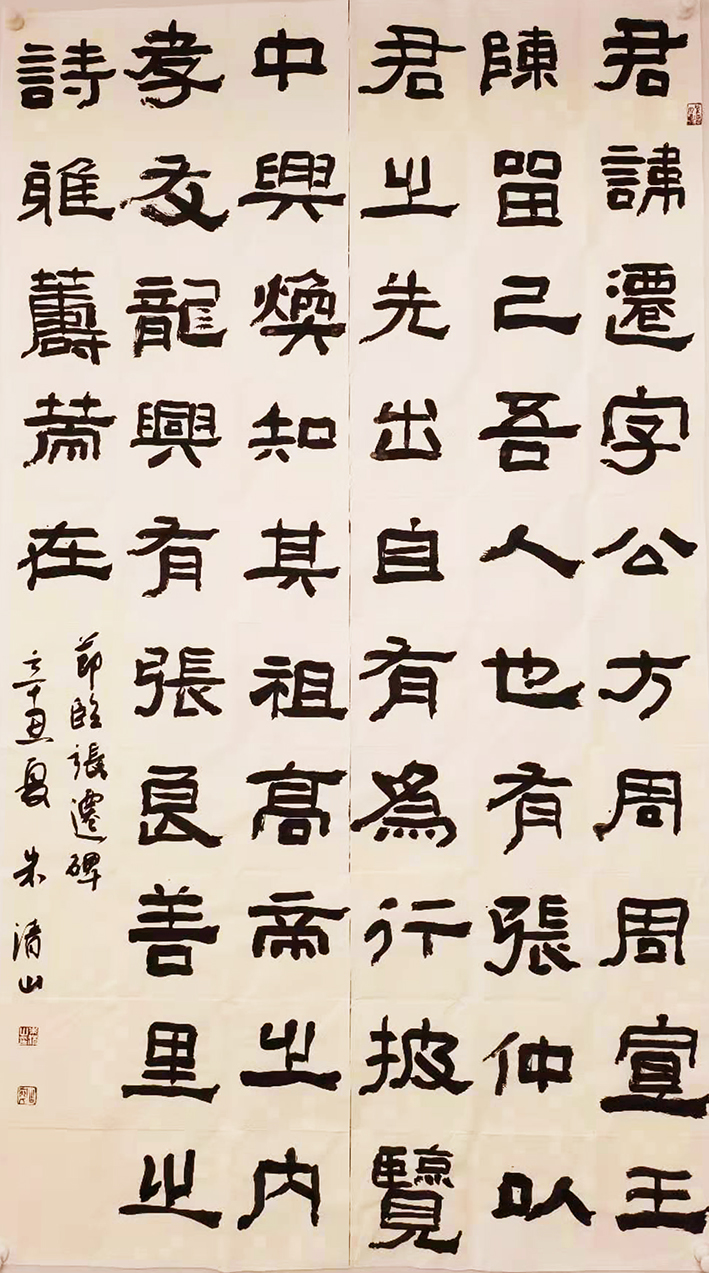 君諱遷字公方周周宣王
陳留己吾人也有張仲以
君之先出自有為行披覽
中興煥知其祖高帝之內
孝友龍興有張良善里之
詩雅薵策在
節臨張遷碑
辛丑夏 朱清山